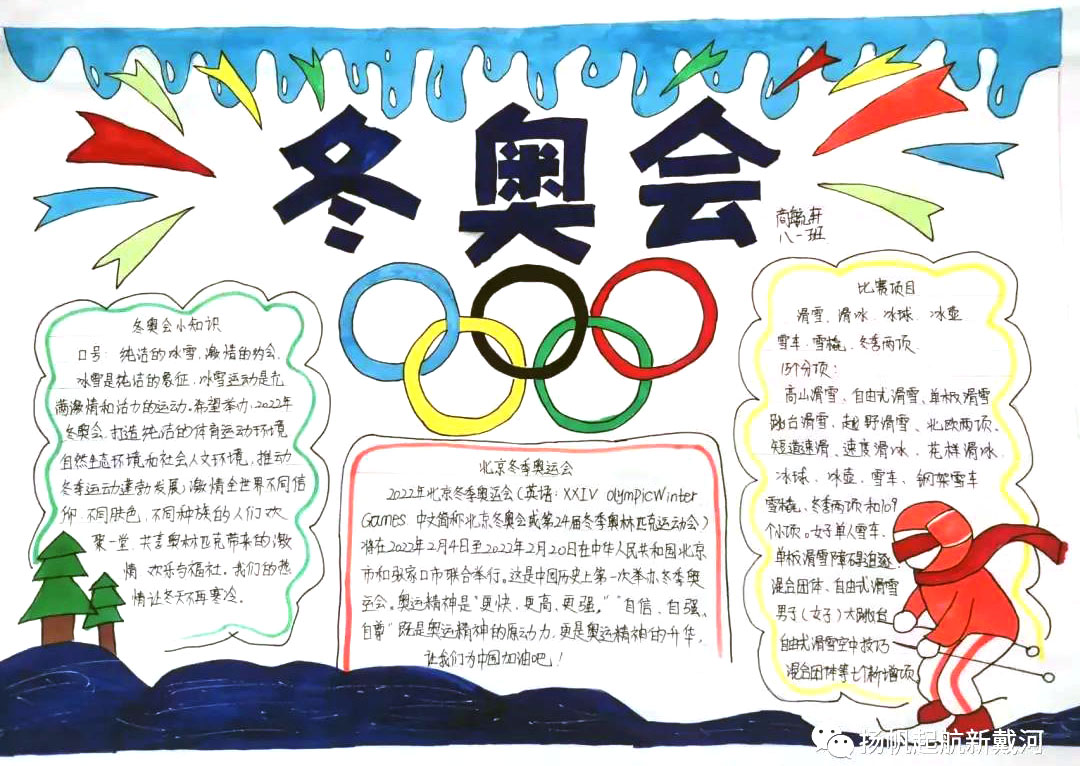 冬奥会
八一班
冬奥会小知识
口号：纯洁的冰雪，激情的约会
冰雪是纯洁的象征，冰雪运动是充
满激情和活力的运动。希望举办2022年
冬奥会，打造纯洁的体育运动环境
自然生态环境和社会人文环境，推动
冬季运动蓬勃发展，激情全世界不同信
仰，不同肤色，不同种族的人们欢
聚一堂，共享奥林匹克带来的激
情 欢乐与福祉。我们的热
情让冬天不再寒冷。
北京冬季奥运会
2022年北京冬季奥运会(英语：XXIV olympicWinter
Games 中文简称北京冬奥会或第24届冬季奥林匹克运动会)
将在2022年2月4日至2022年2月20日在中华人民共和国北京
市和张家口市联合举行。这是中国历史上第一次举办冬季奥
运会。奥运精神是"更快，更高，更强。""自信、自强、
自尊"既是奥运精神的原动力，更是奥运精神的升华，
让我们为中国加油吧！
比赛项目
滑雪、滑冰、冰球、冰壶
雪车、雪橇、冬季两项
15个分项：
高山滑雪、自由式滑雪、单板滑雪
跳台滑雪、越野滑雪、北欧两项、
短道速滑、速度滑冰、花样滑冰、
冰球、冰壶、雪车、钢架雪车
雪橇、冬季两项和109
个小项。女子单人雪车、
单板滑雪障碍追逐
混合团体、自由式滑雪
男子(女子)大跳台
自由式滑雪空中技巧
混合团体等七个新增项
扬帆起航新戴河